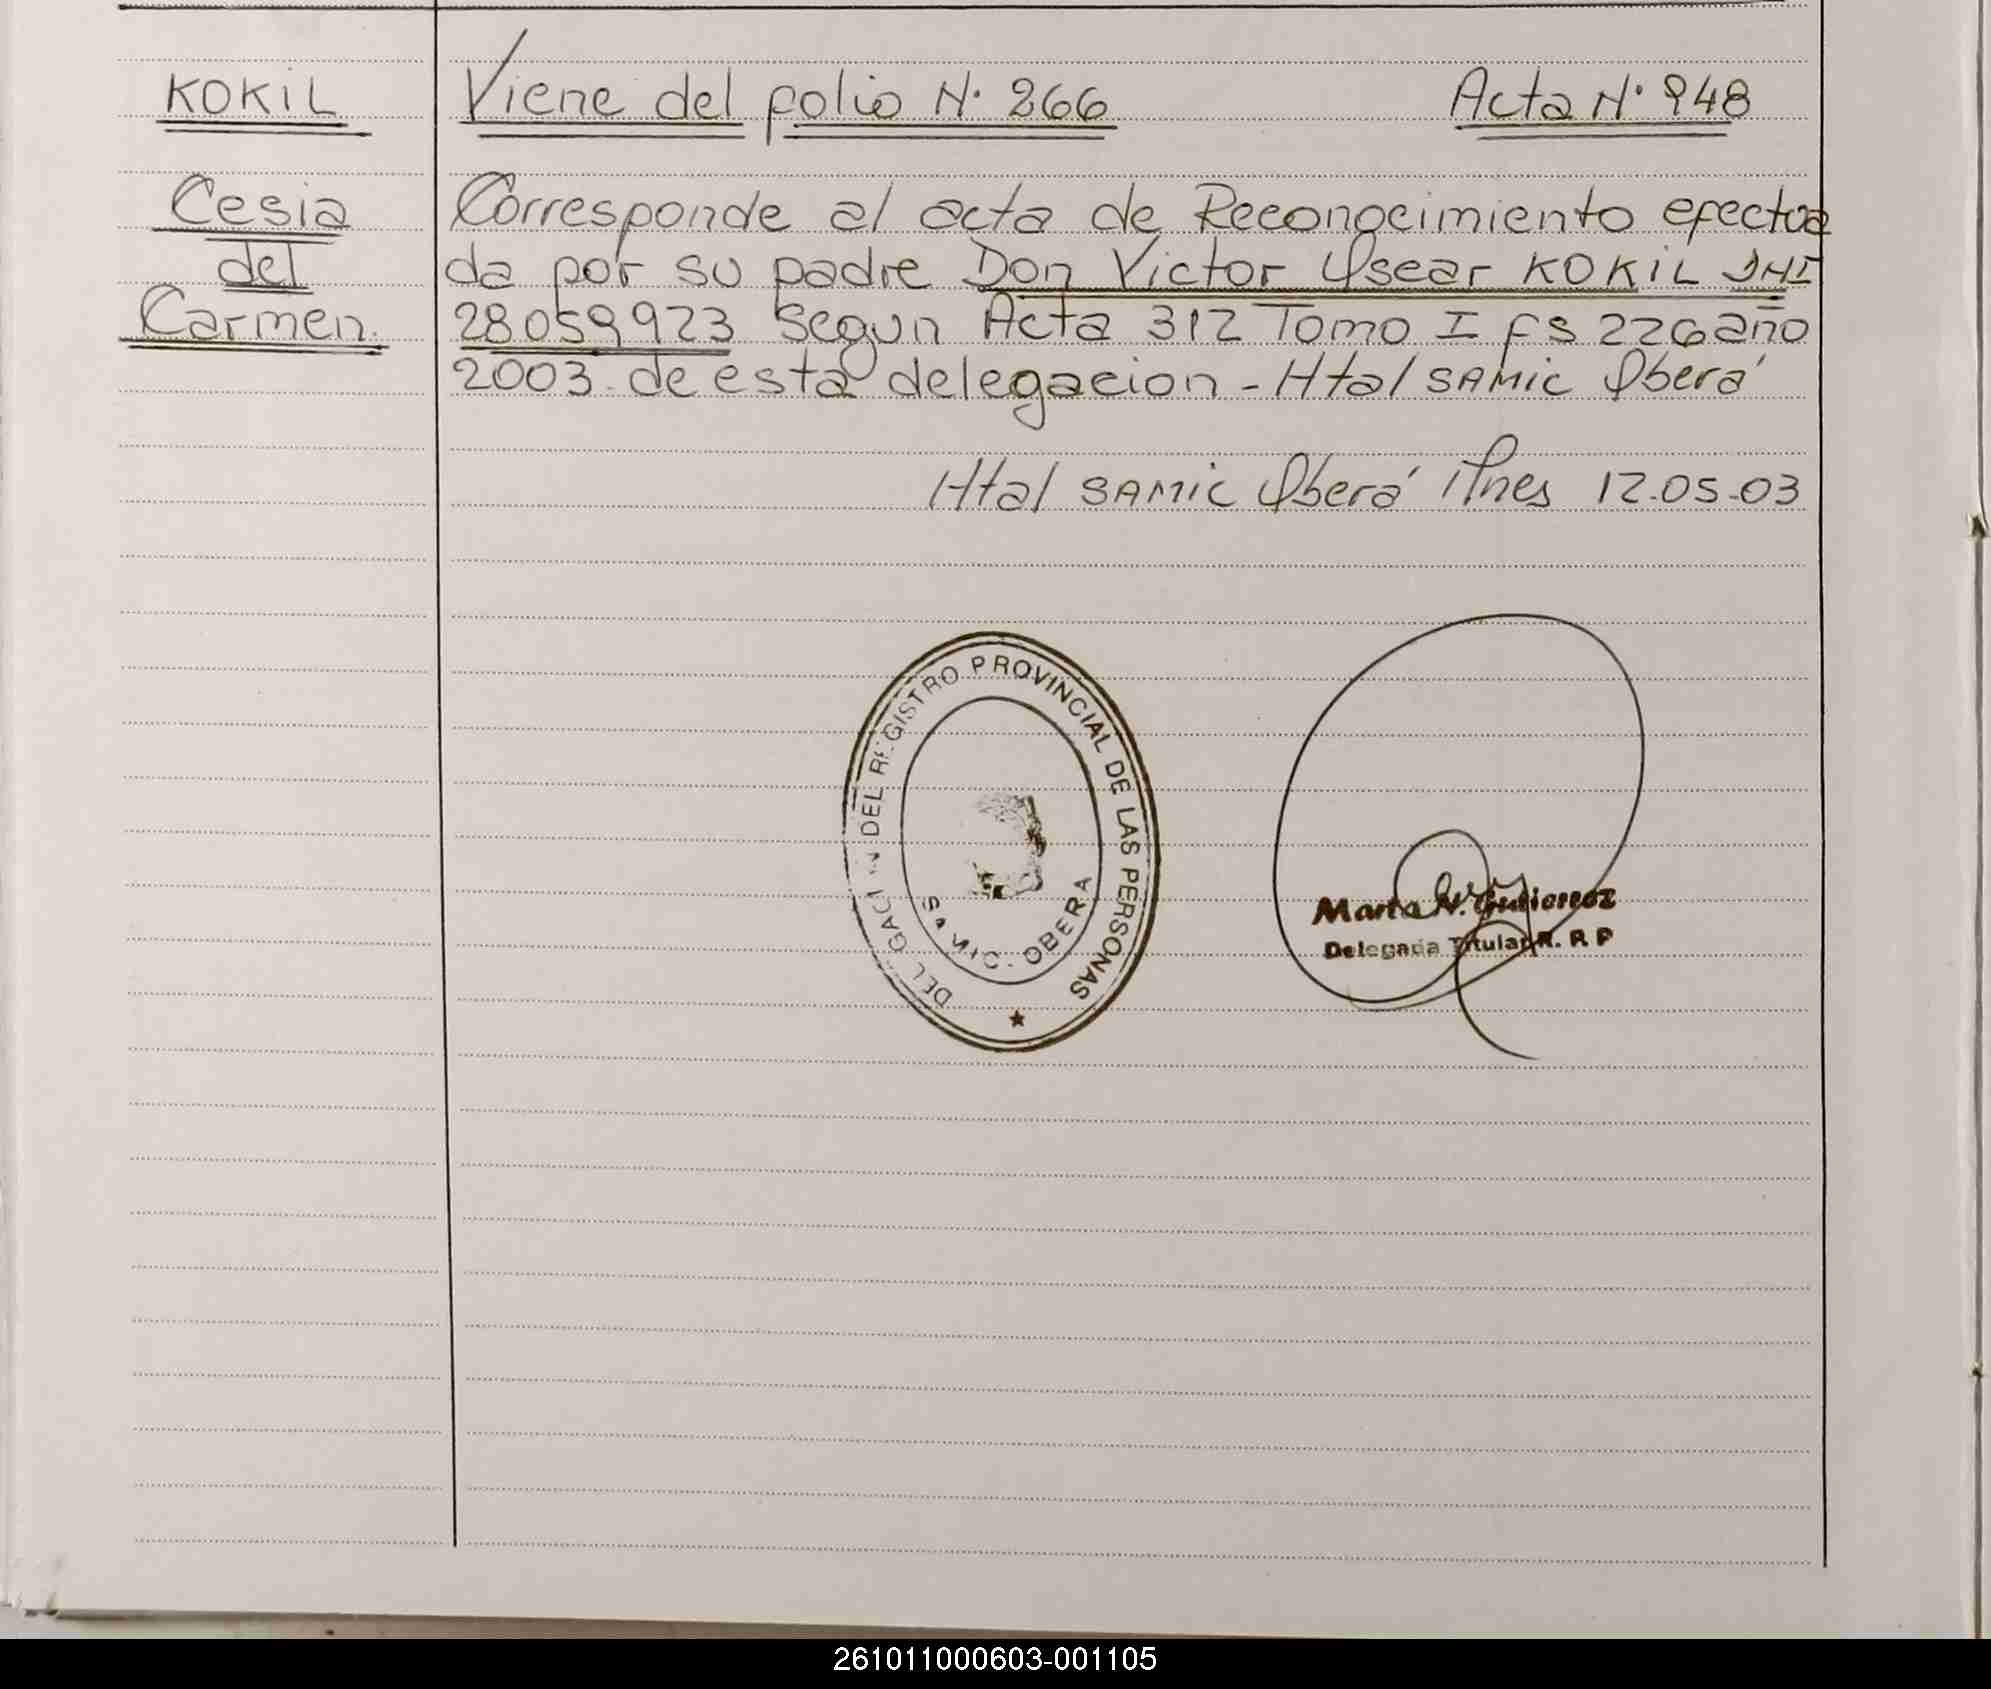 KOKIL
Viene del folio N. 266 Acta N. 948
Cesia
del
Carmen.
Corresponde al acta de Reconocimiento efectua
da por su padre Don Victor Oscar KOKIL DNI
28059923 segun Acta 312 Tomo I fs 226 año
2003. de esta delegacion - Htal SAMIC Oberá
Htal SAMIC Oberá Mnes 12.05.03
DELEGACION DEL REGISTRO PROVINCIAL DE LAS PERSONAS
SAMIC - OBERA
Marta N. Gutierrez
Delegada Titular R. R P
261011000603-001105